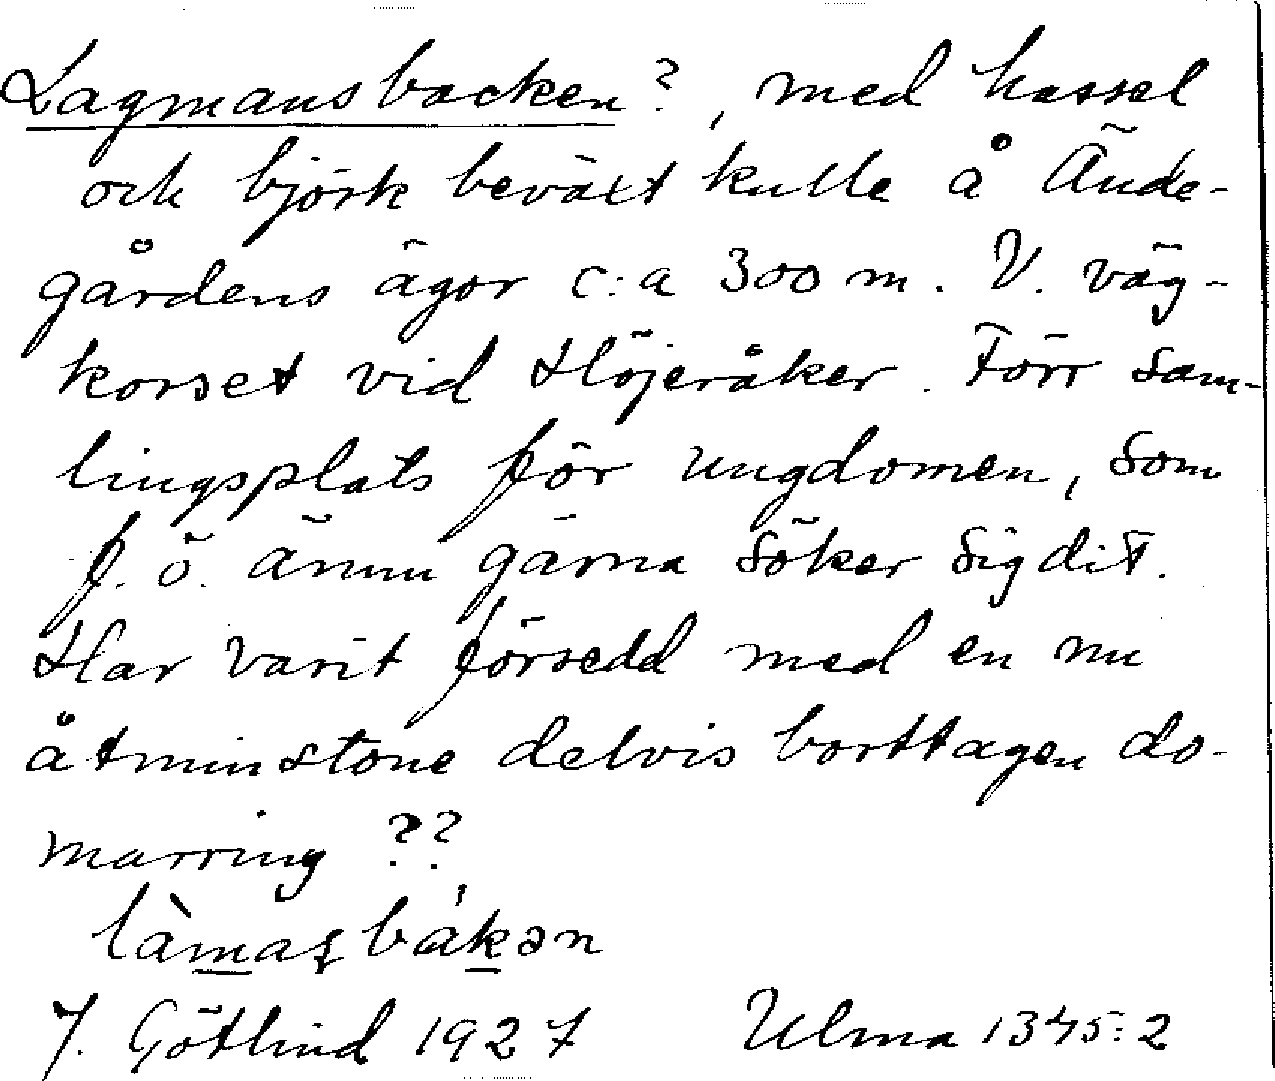 Lagmansbacken?, med hassel
och björk beväxt kulle å Ände-
gårdens ägor c:a 300 m. V. väg-
korset vid Höjeråker. Förr sam-
lingsplats för ungdomen, som
f. ö. ännu gärna söker sig dit.
Har varit försedd med en nu
åtminstone delvis borttagen do-
marring ??
J. Götlind 1927 Ulma 1345:2